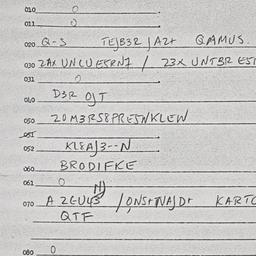 010 0
011 0
020 Q-S TEJB3R JAZt QAMUS.
030 2AX UNLUESRNI / 23X UNTBR ESI
031 0
040 D3R OJT
050 20M3RS8PRESNKLEW
051
052 KLEAJ3--N
060 BRODIFKE
061 0
070 A / KARTO
QTF
080 0